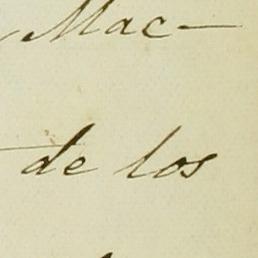 Mac-
de los